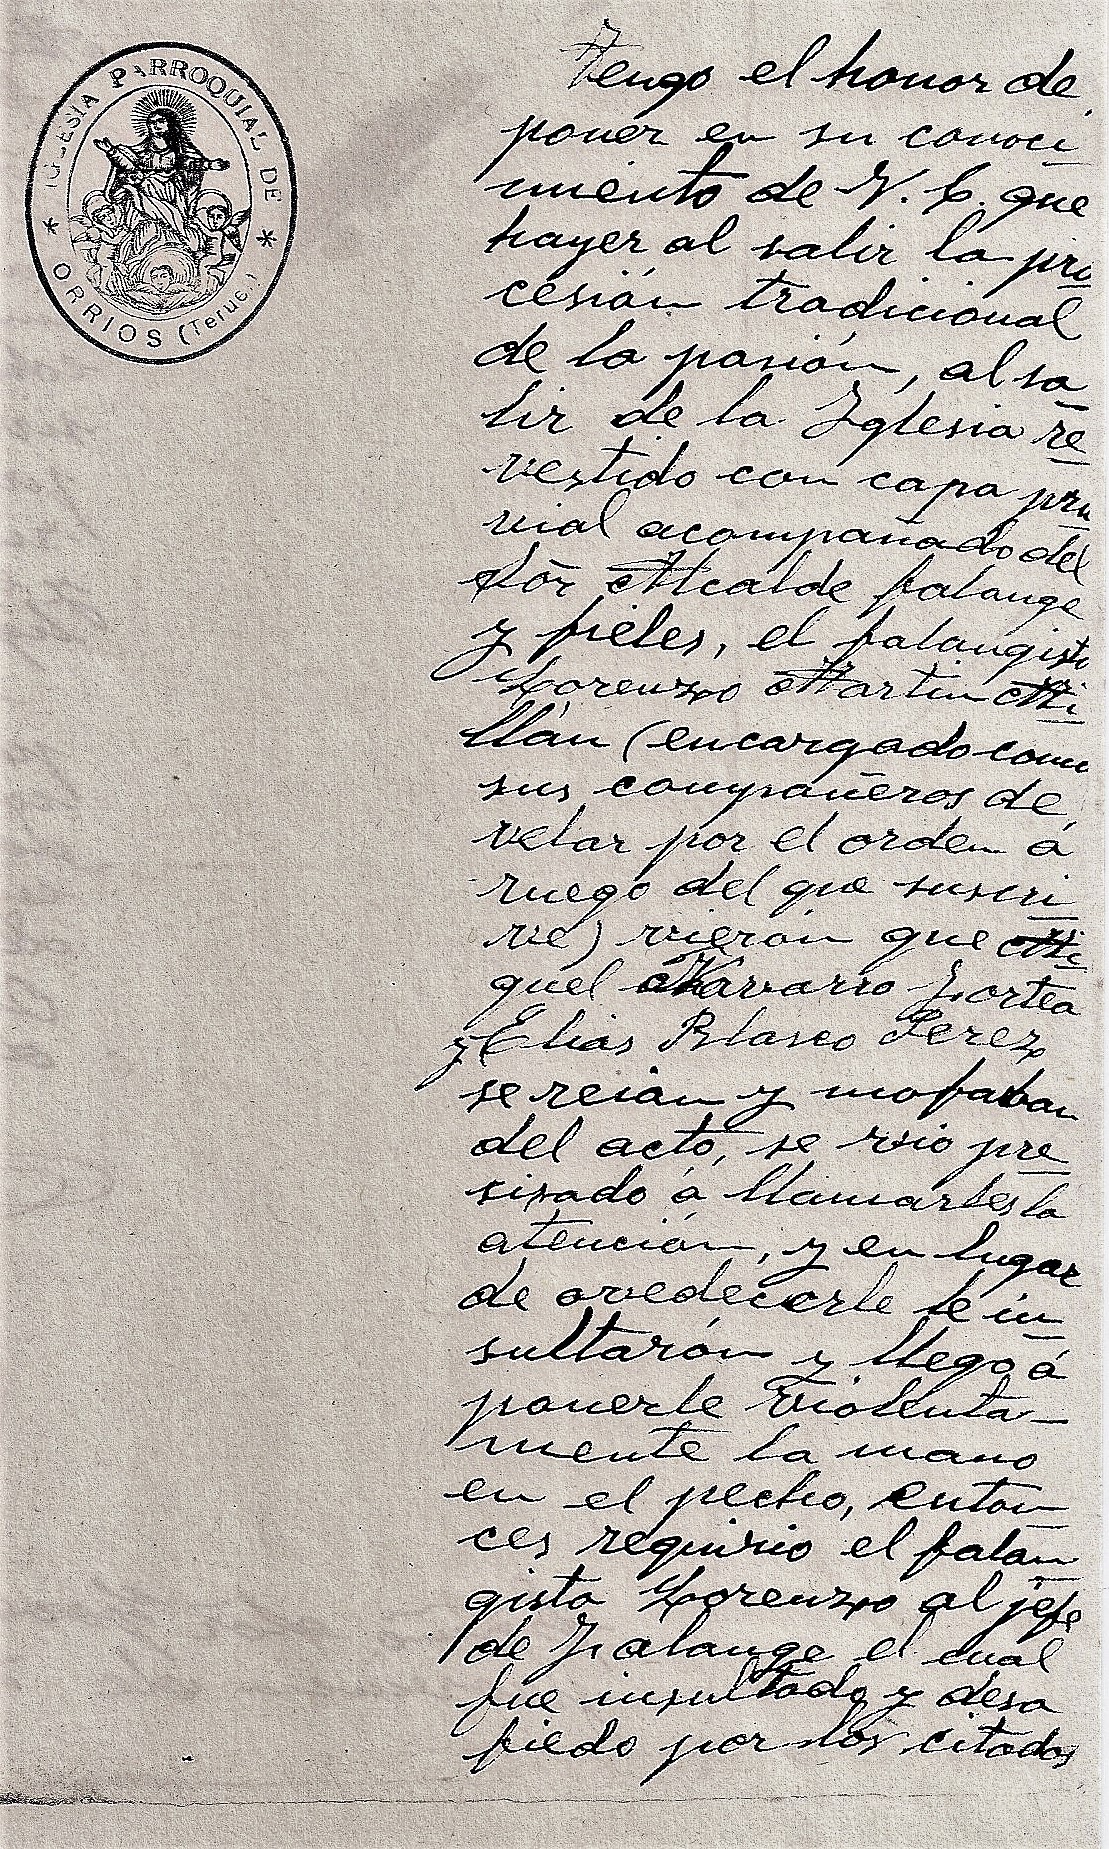 * IGLESIA PARROQUIAL DE *
ORRIOS (Teruel)
Tengo el honor de
poner en su conoci
miento de V. E. que
hayer al salir la pro
cesión tradicional
de la pasión, al sa
lir de la Iglesia re
vestido con capa plu
vial acompañado del
Sör Alcalde falange
y fieles, el falangista
Lorenzo Martin Mi
llán (encargado como
sus compañeros de
velar por el orden á
ruego del que suscri
ve) vierón que Mi
guel Navarro Lortea
y Elias Blasco Perez
se reian y mofaban
del acto, se vio pre
cisado á llamarles la
atención, y en lugar
de ovedecerle le in
sultarón y llego á
ponerle violenta
mente la mano
en el pecho, enton
ces requirio el falan
gista Lorenzo al jefe
de Falange el cual
fue insultado y desa
fiedo por los citados